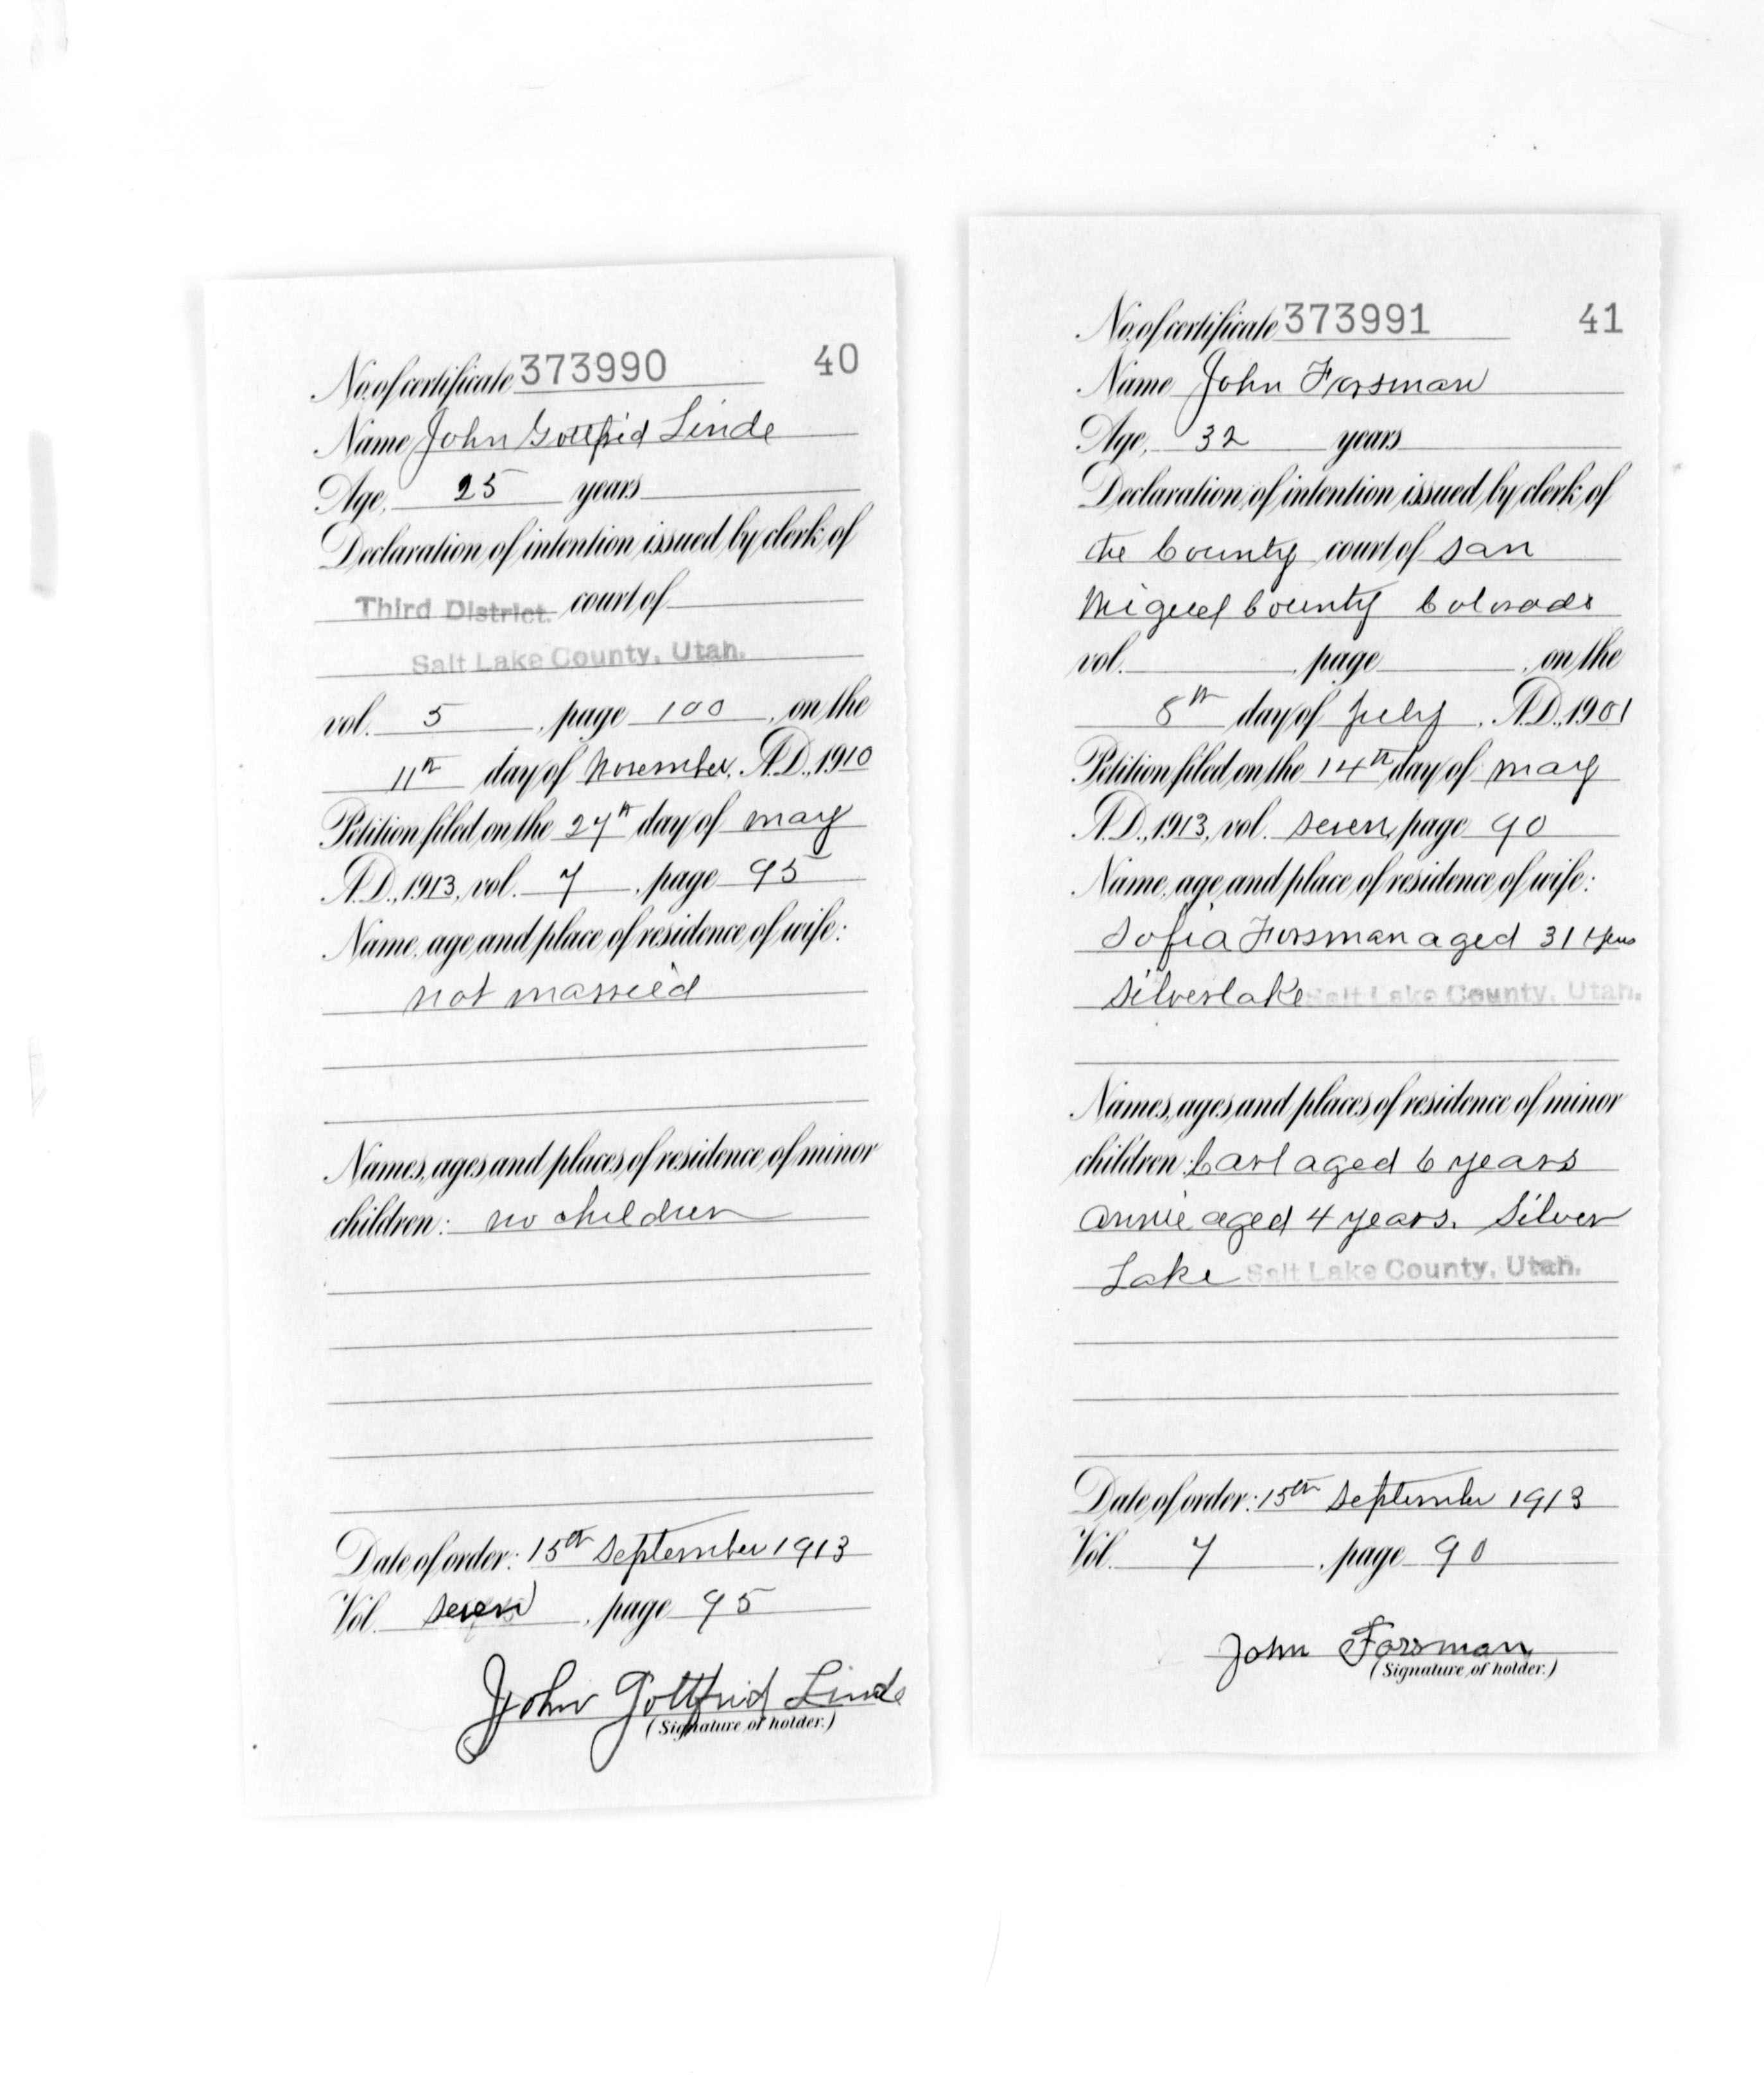 No. of certificate 373990 40
Name John Gottfrid Linde
Age, 25 years
Declaration of intention issued by clerk of
Third District court of
Salt Lake County, Utah.
vol. 5, page 100, on the
11th day of November, A.D., 1910
Petition filed on the 27th day of may
A.D., 1913, vol. 7, page 95
Name, age and place of residence of wife:
not married
Names, ages and places of residence of minor
children: no children
Date of order: 15th September 1913
Vol. seven, page 95
John Gottfrid Linde
(Signature of holder.)
No. of certificate 373991 41
Name John Forsman
Age, 32 years
Declaration of intention issued by clerk of
the County court of San
Miguel County Colorado
vol. , page , on the
8th day of July, A.D., 1901
Petition filed on the 14th day of may
A.D., 1913, vol. seven, page 90
Name, age and place of residence of wife:
Sofia Forsman aged 31 years
Silverlake Salt Lake County, Utah.
Names, ages and places of residence of minor
children: Carl aged 6 years
Annie aged 4 years. Silver
Lake Salt Lake County, Utah.
Date of order: 15th September 1913
Vol. 7, page 90
John Forsman
(Signature of holder.)